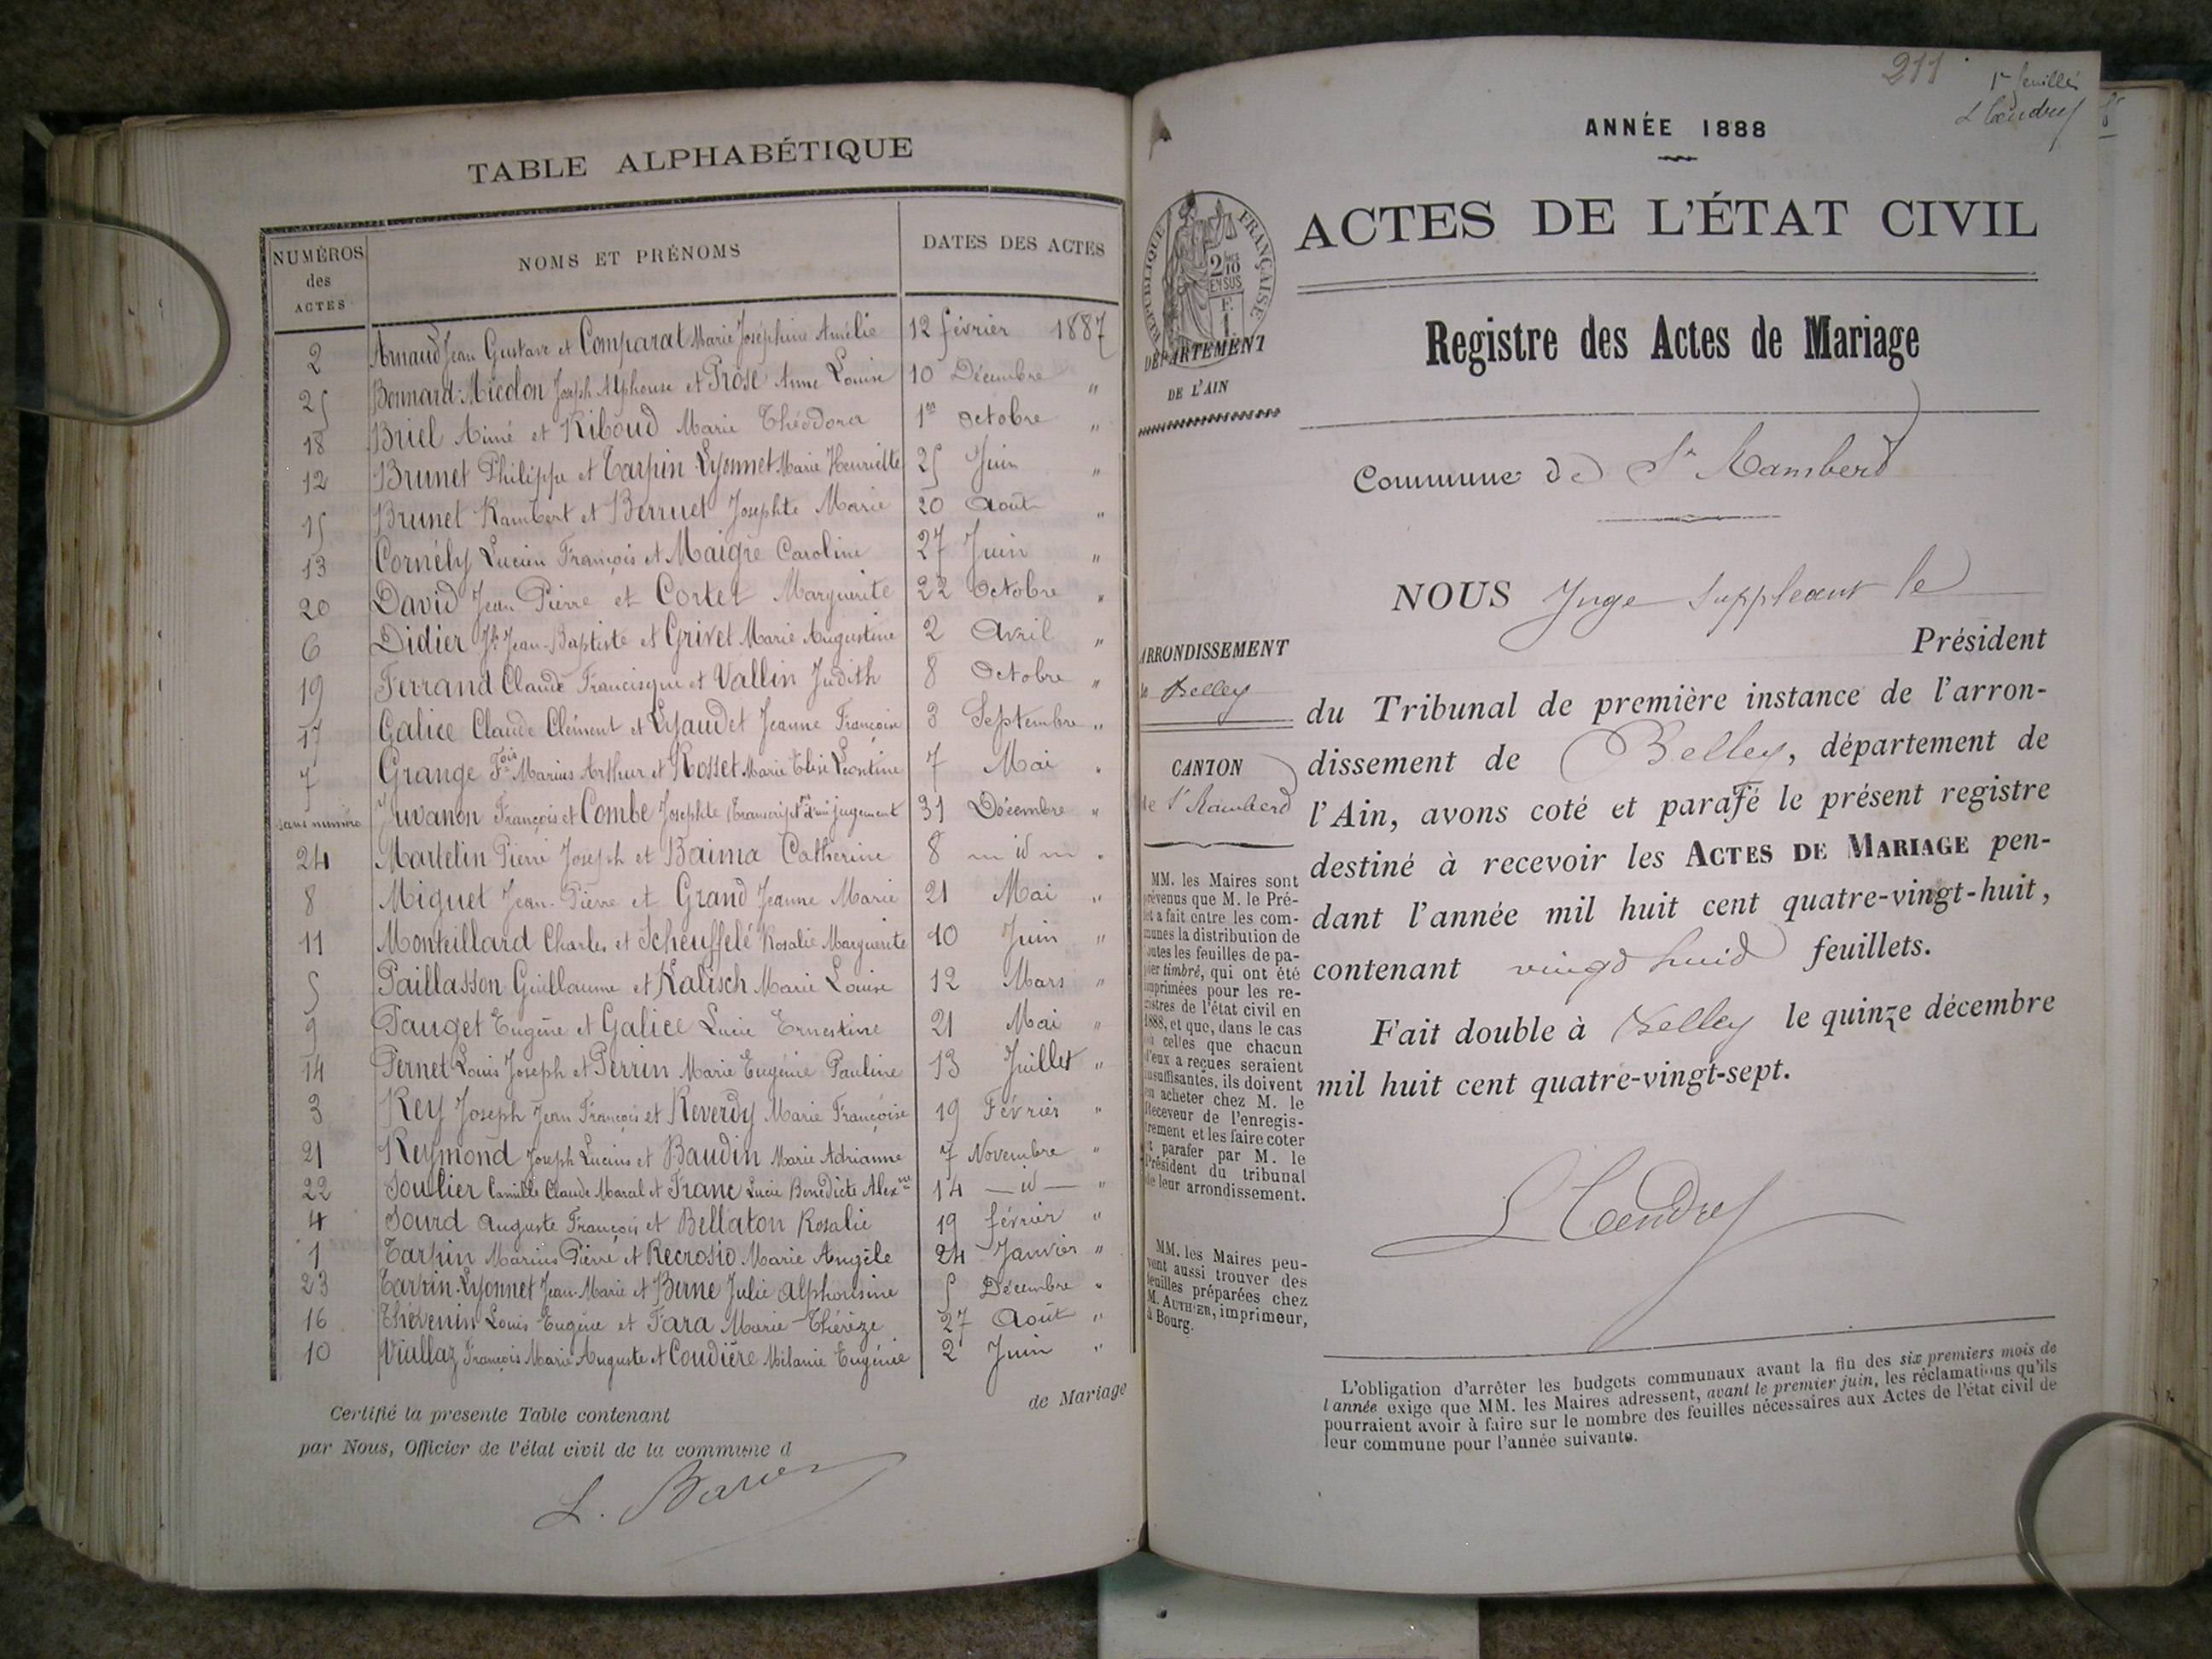 TABLE ALPHABÉTIQUE
NUMÉROS des ACTES NOMS ET PRÉNOMS DATES DES ACTES
2 Arnaud Jean Gustave et Comparat Marie Joséphine Amélie 12 février 1887
25 Bonnard-Micolon Joseph Alphonse et Prost Anne Louise 10 Décembre "
18 Briel Aimé et Riboud Marie Théodora 1er Octobre "
12 Brunet Philippe et Tarpin-Lyonnet Marie Henriette 25 Juin "
15 Brunet Rambert et Berruet Josephte Marie 20 Août "
13 Cornély Lucien François et Maigre Caroline 27 Juin "
20 David Jean Pierre et Cortet Marguerite 22 Octobre "
6 Didier Jh Jean-Baptiste et Grivet Marie Augustine 2 Avril "
19 Ferrand Claude Francisque et Vallin Judith 8 Octobre "
17 Galice Claude Clément et Lyaudet Jeanne Françoise 3 Septembre "
7 Grange Fois Marius Arthur et Rosset Marie Elise Léontine 7 Mai "
sans numéro Juvanon François et Combe Josephte (transcript.on d'un jugement 31 Décembre "
24 Martelin Pierre Joseph et Baima Catherine 8 — id — "
8 Miguet Jean-Pierre et Grand Jeanne Marie 21 Mai "
11 Monteillard Charles et Scheuffelé Rosalie Marguerite 10 Juin "
5 Paillasson Guillaume et Kalisch Marie Louise 12 Mars "
9 Pauget Eugène et Galice Lucie Ernestine 21 Mai "
14 Pernet Louis Joseph et Perrin Marie Eugénie Pauline 13 Juillet "
3 Rey Joseph Jean François et Reverdy Marie Françoise 19 Février "
21 Reymond Joseph Lucius et Baudin Marie Adrianne 7 Novembre "
22 Soulier Camille Claude Marcel et Franc Lucie Benedicte Alexne 14 — id — "
4 Sourd Auguste François et Bellaton Rosalie 19 février "
1 Tarpin Marius Pierre et Recrosio Marie Angèle 24 Janvier "
23 Tarpin-Lyonnet Jean-Marie et Berne Julie Alphonsine 5 Décembre "
16 Thévenin Louis-Eugène et Fara Marie-Thérèze 27 Août "
10 Viallaz François Marie Auguste et Coudière Mélanie Eugénie 2 Juin "
Certifié la présente Table contenant de Mariage
par Nous, Officier de l'état civil de la commune d
211
1er feuillet
ANNÉE 1888
RÉPUBLIQUE FRANÇAISE
ACTES DE L'ÉTAT CIVIL
Registre des Actes de Mariage
DÉPARTEMENT
DE L'AIN
Commune de St Rambert
NOUS Juge suppléant le
Président
ARRONDISSEMENT
de Belley
CANTON
de St Rambert
du Tribunal de première instance de l'arron-
dissement de Belley, département de
l'Ain, avons coté et parafé le présent registre
destiné à recevoir les ACTES DE MARIAGE pen-
dant l'année mil huit cent quatre-vingt-huit,
contenant vingt huit feuillets.
Fait double à Belley le quinze décembre
mil huit cent quatre-vingt-sept.
MM. les Maires sont
prévenus que M. le Pré-
fet a fait entre les com-
munes la distribution de
toutes les feuilles de pa-
pier timbré, qui ont été
imprimées pour les re-
gistres de l'état civil en
1888, et que, dans le cas
où celles que chacun
d'eux a reçues seraient
insuffisantes, ils doivent
en acheter chez M. le
Receveur de l'enregis-
trement et les faire coter
et parafer par M. le
Président du tribunal
de leur arrondissement.
MM. les Maires peu-
vent aussi trouver des
feuilles préparées chez
M. AUTHIER, imprimeur,
à Bourg.
L'obligation d'arrêter les budgets communaux avant la fin des six premiers mois de
l'année exige que MM. les Maires adressent, avant le premier juin, les réclamations qu'ils
pourraient avoir à faire sur le nombre des feuilles nécessaires aux Actes de l'état civil de
leur commune pour l'année suivante.